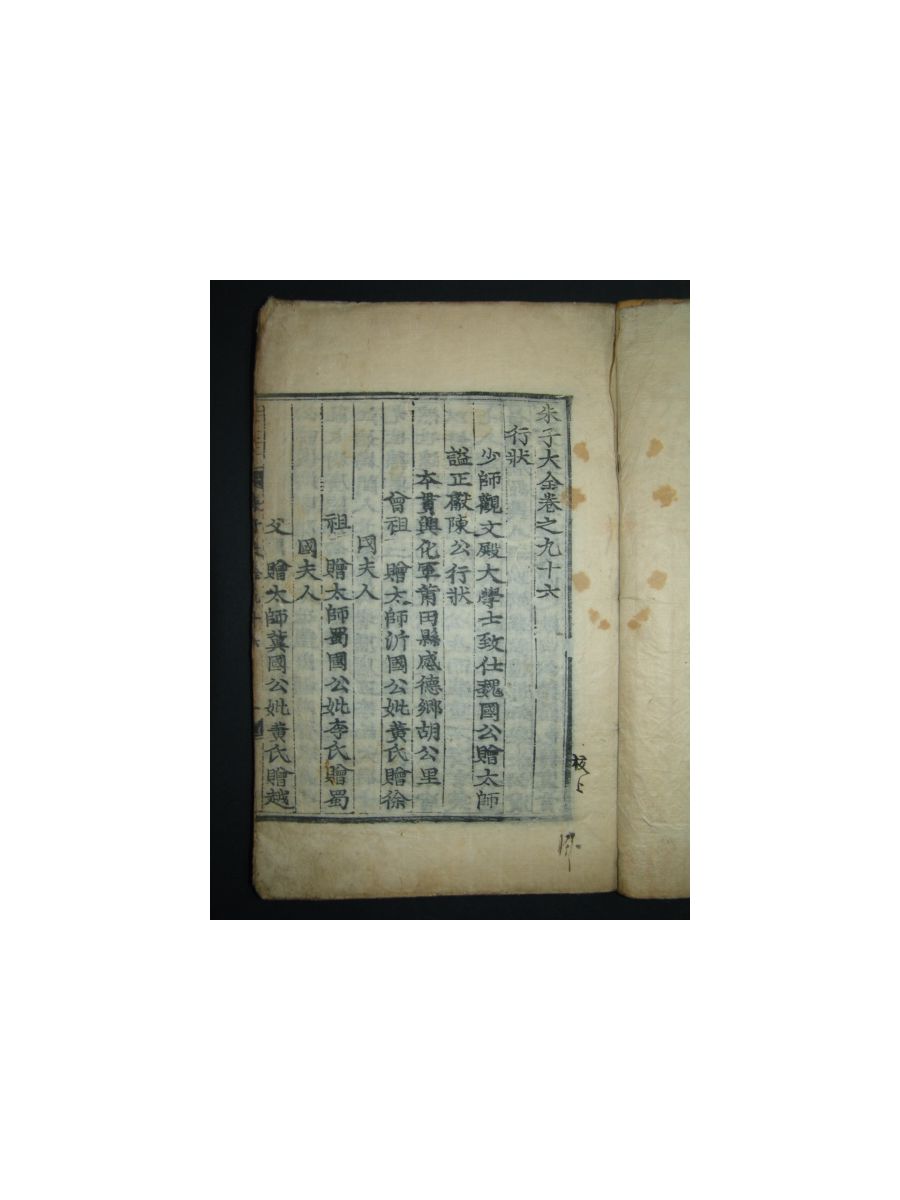 朱子大全卷之九十六
行狀
少師觀文殿大學士致仕魏國公贈太師
謚正獻陳公行狀
本貫興化軍莆田縣感德鄉胡公里
曾祖 贈太師沂國公妣黃氏贈徐
國夫人
祖 贈太師蜀國公妣李氏贈蜀
國夫人
父 贈太師冀國公妣黃氏贈越
校上